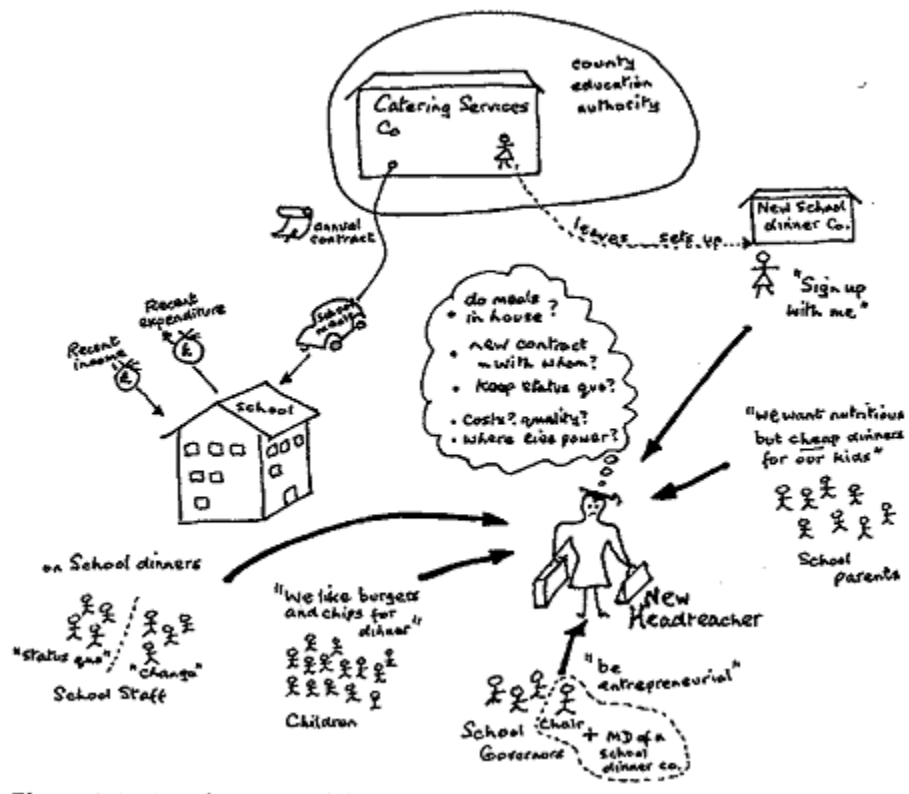 county
education
authority
Catering Services
Co
annual
contract
leaves sets up
New School
dinner Co.
"Sign up
with me"
Recent
expenditure
£
Recent
income
£
School
meals
School
• do meals
in house?
• new contract
– with whom?
• Keep status quo?
• Costs? quality?
• where lies power?
"we want nutritious
but cheap dinners
for our kids"
School
parents
on School dinners
"status quo"
"change"
School Staff
"We like burgers
and chips for
dinner"
Children
New
Headteacher
"be
entrepreneurial"
School
Governors
Chair
+ MD of a
school
dinner co.